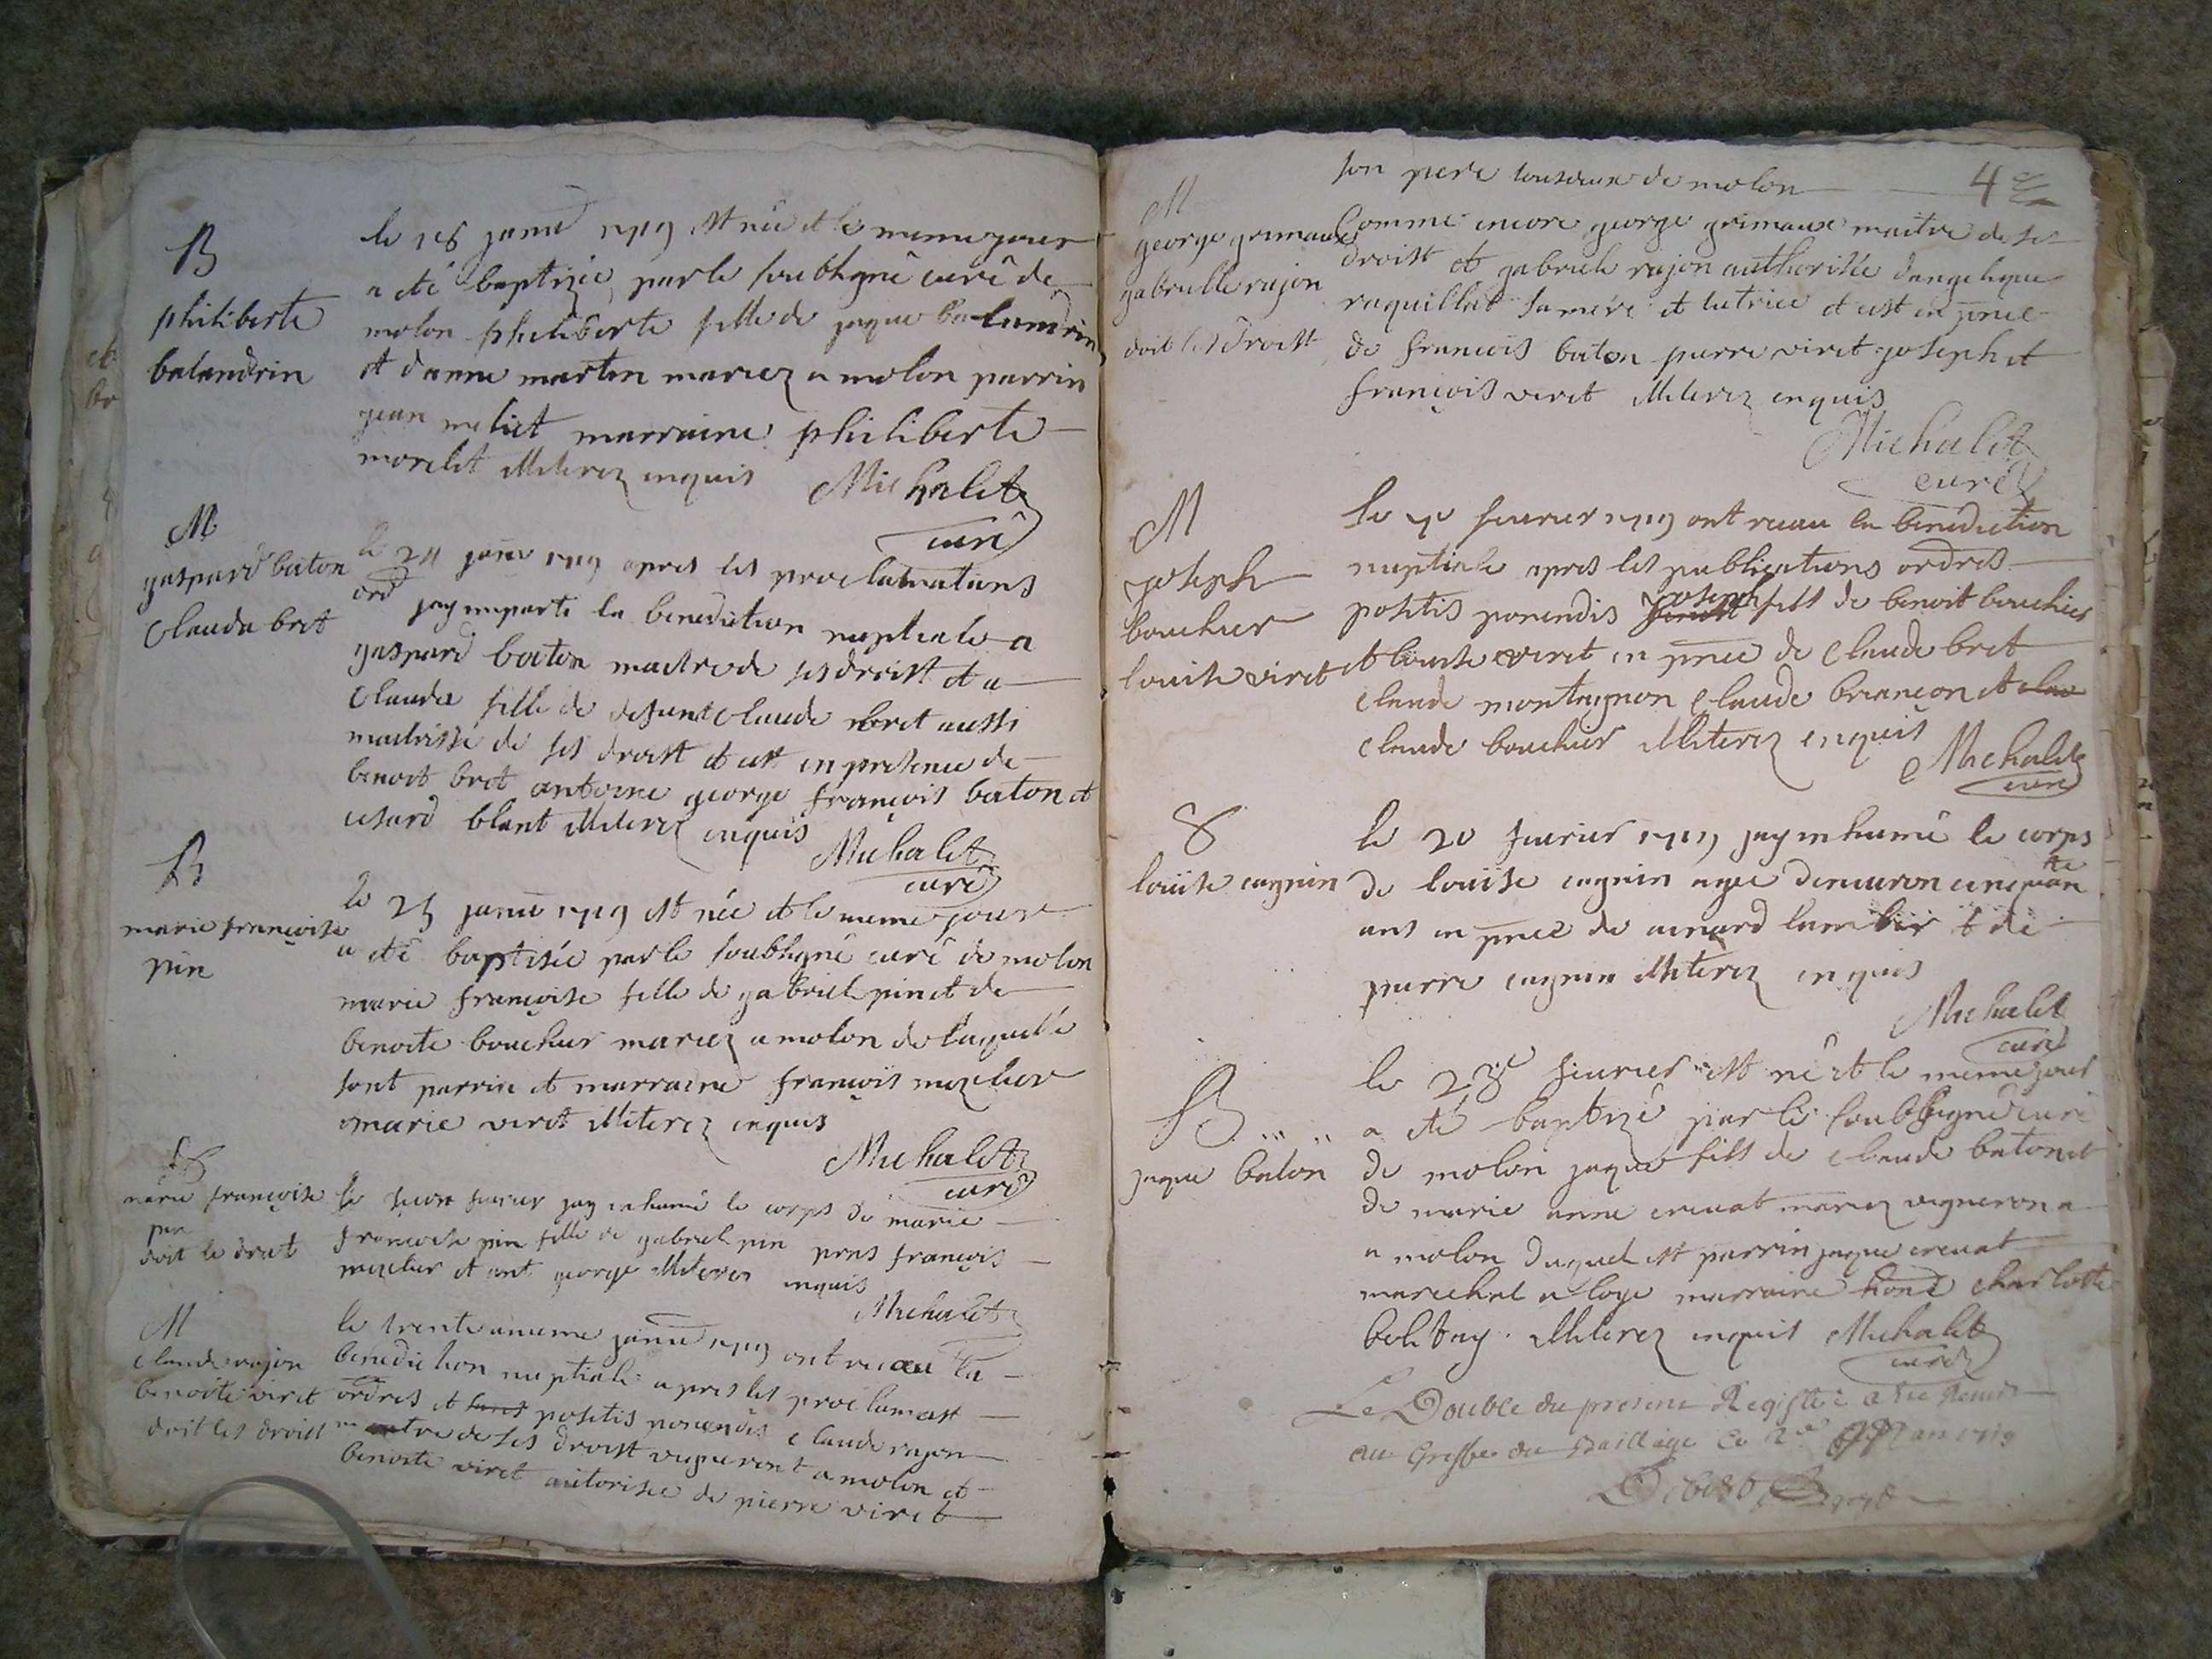 B
philiberte
balandrin
le 18 janvi 1719 est née et le meme jour
a eté baptizée par le soubsigné curé de
molon philiberte fille de jaque balandrin
et danne martin mariez a molon parrin
jean meliet marraine philiberte
morelet illiterez enquis Michalet
curé
M
gaspard baton
claude bret
le 24 janv 1719 apres les proclamations
ord jay imparti la benediction nuptiale a
gaspard baton maitre de ses droist et a
claude fille de defunt claude bret aussi
maitrisse de ses droist et cest en presence de
benoit bret antoine george françois baton et
blant illiterez enquis
Michalet
curé
B
marie françoise
pin
le 25 janvi 1719 est née et le meme jour
a eté baptisée par le soubsigné curé de molon
marie françoise fille de gabriel pin et de
benoite bouchier mariez a molon de laquelle
sont parrin et marraine françois mercier
marie viret illiterez enquis
Michalet
curé
S
marie françoise
pin
doit le droit
le fevrier jay inhumé le corps de marie
francoise pin fille de gabriel pin pnts françois
mercier et ant george illiterez enquis
Michalet
M
claude rajon
benoite viret
doit les droist
le trente unieme janvi 1719 ont receu la
benediction nuptiale apres les proclamast
ordres et positis ponendis claude rajon
maitre de ses droist vigneront a molon et
benoite viret autorisee de pierre viret
4e
son pere tousdeux de molon
M
george grimaux
gabrielle rajon
doit les droist
Comme encore george grimaux maitre de ses
droist et gabriele rajon authorisée dangelique
raquillat sa mere et tutrice et cest en pnce
de francois baton pierre viret joseph et
françois viret illiterez enquis
Michalet
curé
M
joseph
bouchier
louise viret
le fevrier 1719 ont receu la benediction
nuptiale apres les publications ordres
positis ponendis joseph fils de benoit bouchier
et louise viret en pnce de claude bret
claude montagnon claude briançon et
claude bouchier illiterez enquis
Michalet
curé
S
louise cagnin
le 20 fevrier 1719 jay inhumé le corps
de louise cagnin agee denviron cinquante
ans en pnce de lambir et de
pierre cagnin illiterez enquis
Michalet
curé
B
jaque baton
le fevrier est né et le meme jour
a eté baptizé par le soubsigné curé
de molon jaque fils de claude baton et
de marie anne crevat mariez vigneron a
a molon duquel est parrin jaque crevat
marechal a loye marraine charlotte
illiterez enquis Michalet
curé
Le Double du present Registre a ete Remis
au Greffe du Bailliage ce